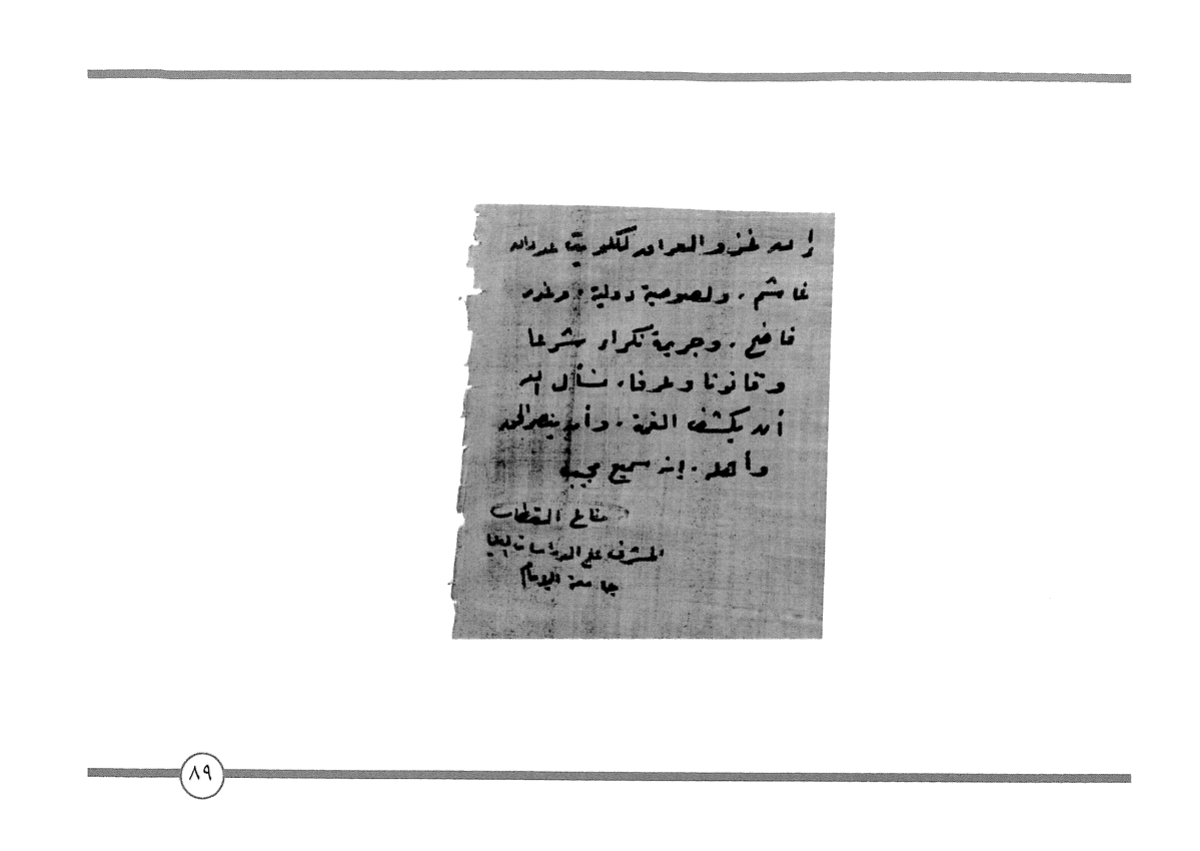 إن غزو العراق للكويت عدوان
غاشم، ولصوصية دولية، وغدر
فاضح، وجريمة نكراء شرعا
وقانونا وعرفا، نسأل الله
أن يكشف الغمة، وأن ينصر الحق
وأهله، إنه سميع مجيب
مناع القطان
المشرف على الدراسات العليا
جامعة الإمام
٨٩